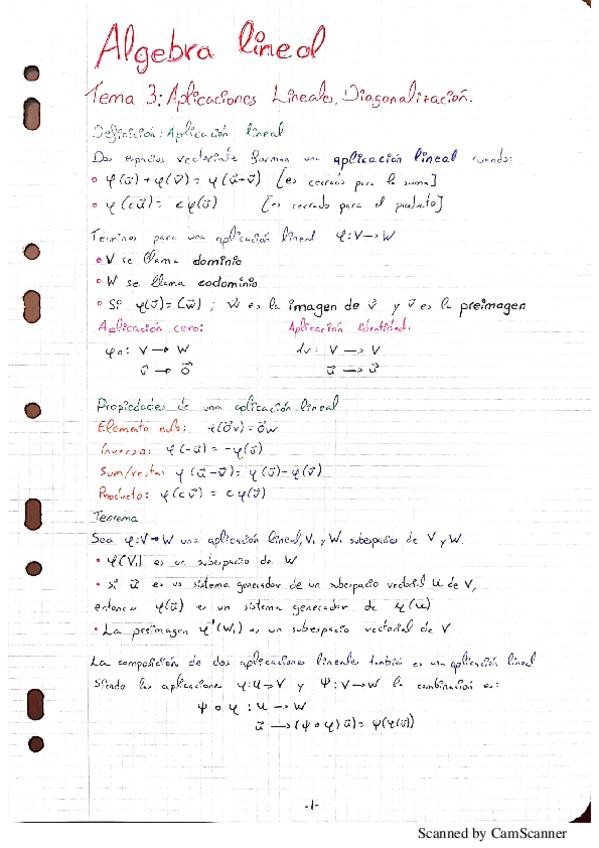 Algebra lineal
Tema 3: Aplicaciones Lineales, Diagonalización.
Definición: Aplicación lineal
Dos espacios vectoriales forman una aplicación lineal cuando:
• φ(u⃗)+φ(v⃗)= φ(u⃗+v⃗) [es cerrado para la suma]
• φ(cu⃗)= cφ(u⃗) [es cerrado para el producto]
Terminos para una aplicación lineal φ:V→W
• V se llama dominio
• W se llama codominio
• Si φ(v⃗)=(w⃗) ; w⃗ es la imagen de v⃗ y v⃗ es la preimagen
Aplicación cero: Aplicación identidad.
φ₀: V → W dv: V → V
v⃗ → 0⃗ u⃗ → u⃗
Propiedades de una aplicación lineal
Elemento nulo: φ(0⃗v)=0⃗w
Inversa: φ(-u⃗)= -φ(u⃗)
Sum/resta: φ(u⃗-v⃗)= φ(u⃗)-φ(v⃗)
Producto: φ(cv⃗) = cφ(v⃗)
Teorema
Sea φ:V→W una aplicación lineal, V₁ y W₁ subespacios de V y W.
• φ(V₁) es un subespacio de W
• si u⃗ es un sistema generador de un subespacio vectorial U de V,
entonces φ(u⃗) es un sistema generador de φ(U)
• La preimagen φ⁻¹(W₁) es un subespacio vectorial de V
La composición de dos aplicaciones lineales también es una aplicación lineal
Siendo las aplicaciones φ:U→V y Ψ:V→W la combinación es:
Ψ ∘ φ : U → W
u⃗ → (Ψ∘φ)(u⃗)= Ψ(φ(u⃗))
-1-
Scanned by CamScanner